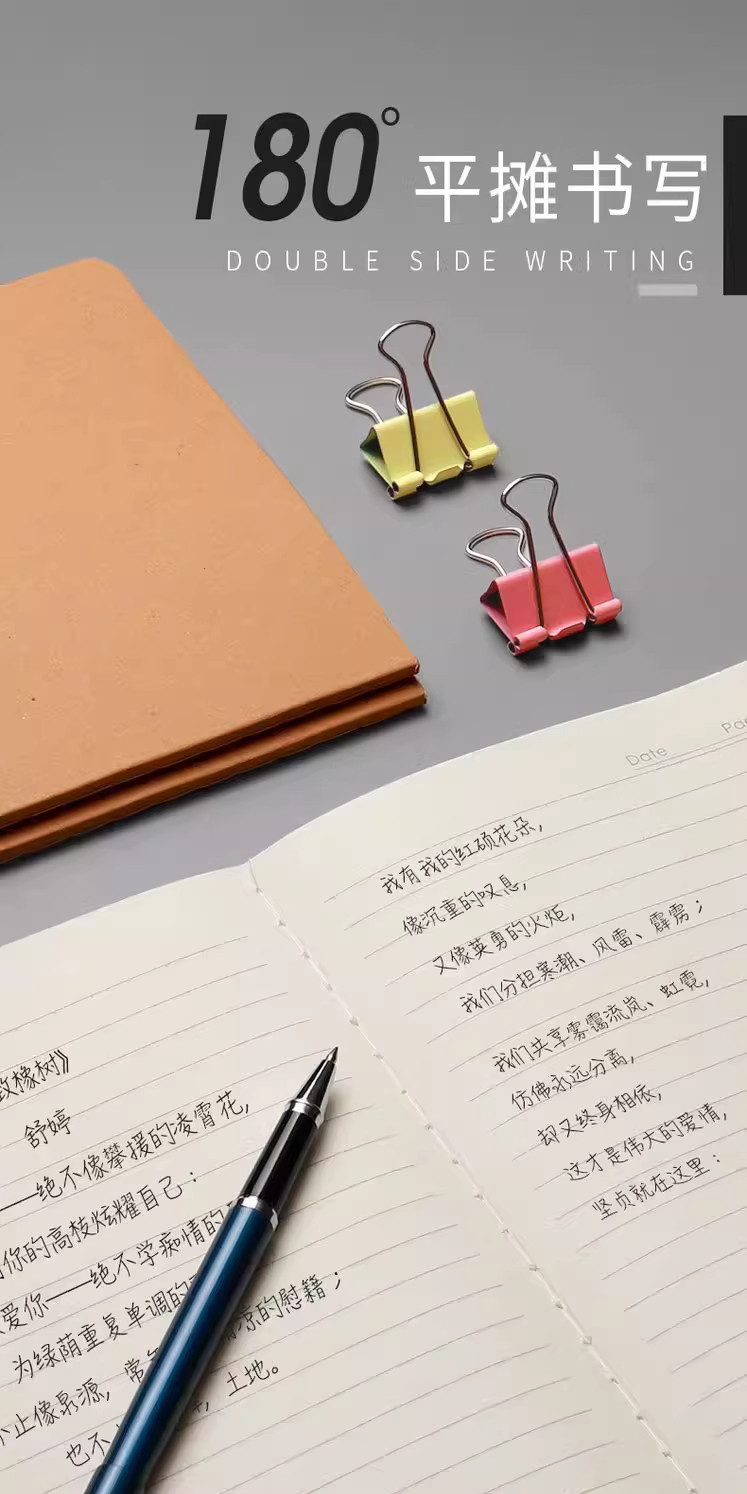 180°平摊书写
DOUBLE SIDE WRITING
Date
我有我的红硕花朵，
像沉重的叹息，
又像英勇的火炬，
我们分担寒潮、风雷、霹雳；
我们共享雾霭流岚、虹霓，
仿佛永远分离，
却又终身相依，
这才是伟大的爱情，
坚贞就在这里：
橡树》
舒婷
——绝不像攀援的凌霄花，
你的高枝炫耀自己：
爱你——绝不学痴情的
为绿荫重复单调的
止像泉源，常 凉的慰籍；
也不 土地。